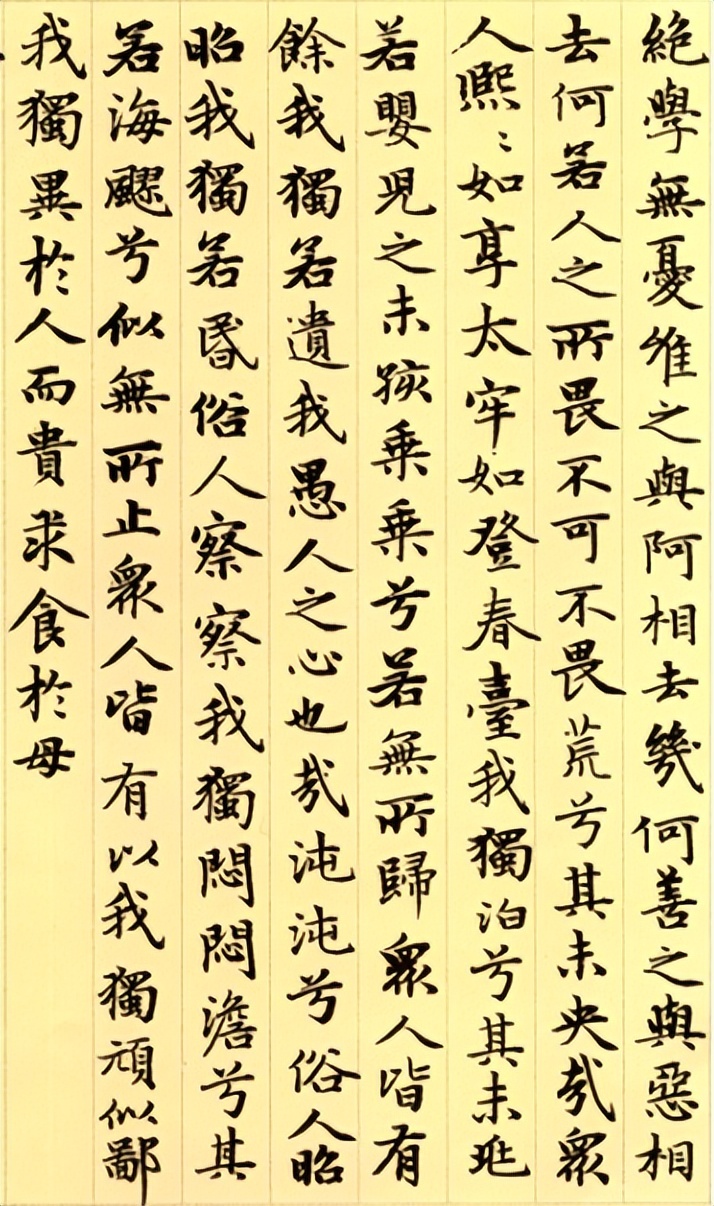 絶學無憂維之與阿相去幾何善之與惡相
去何若人之所畏不可不畏荒兮其未央哉衆
人熙〻如享太牢如登春臺我獨泊兮其未兆
若嬰兒之未孩乘乘兮若無所歸衆人皆有
餘我獨若遺我愚人之心也哉沌沌兮俗人昭
昭我獨若昬俗人察察我獨悶悶澹兮其
若海飂兮似無所止衆人皆有以我獨頑似鄙
我獨異於人而貴求食於母